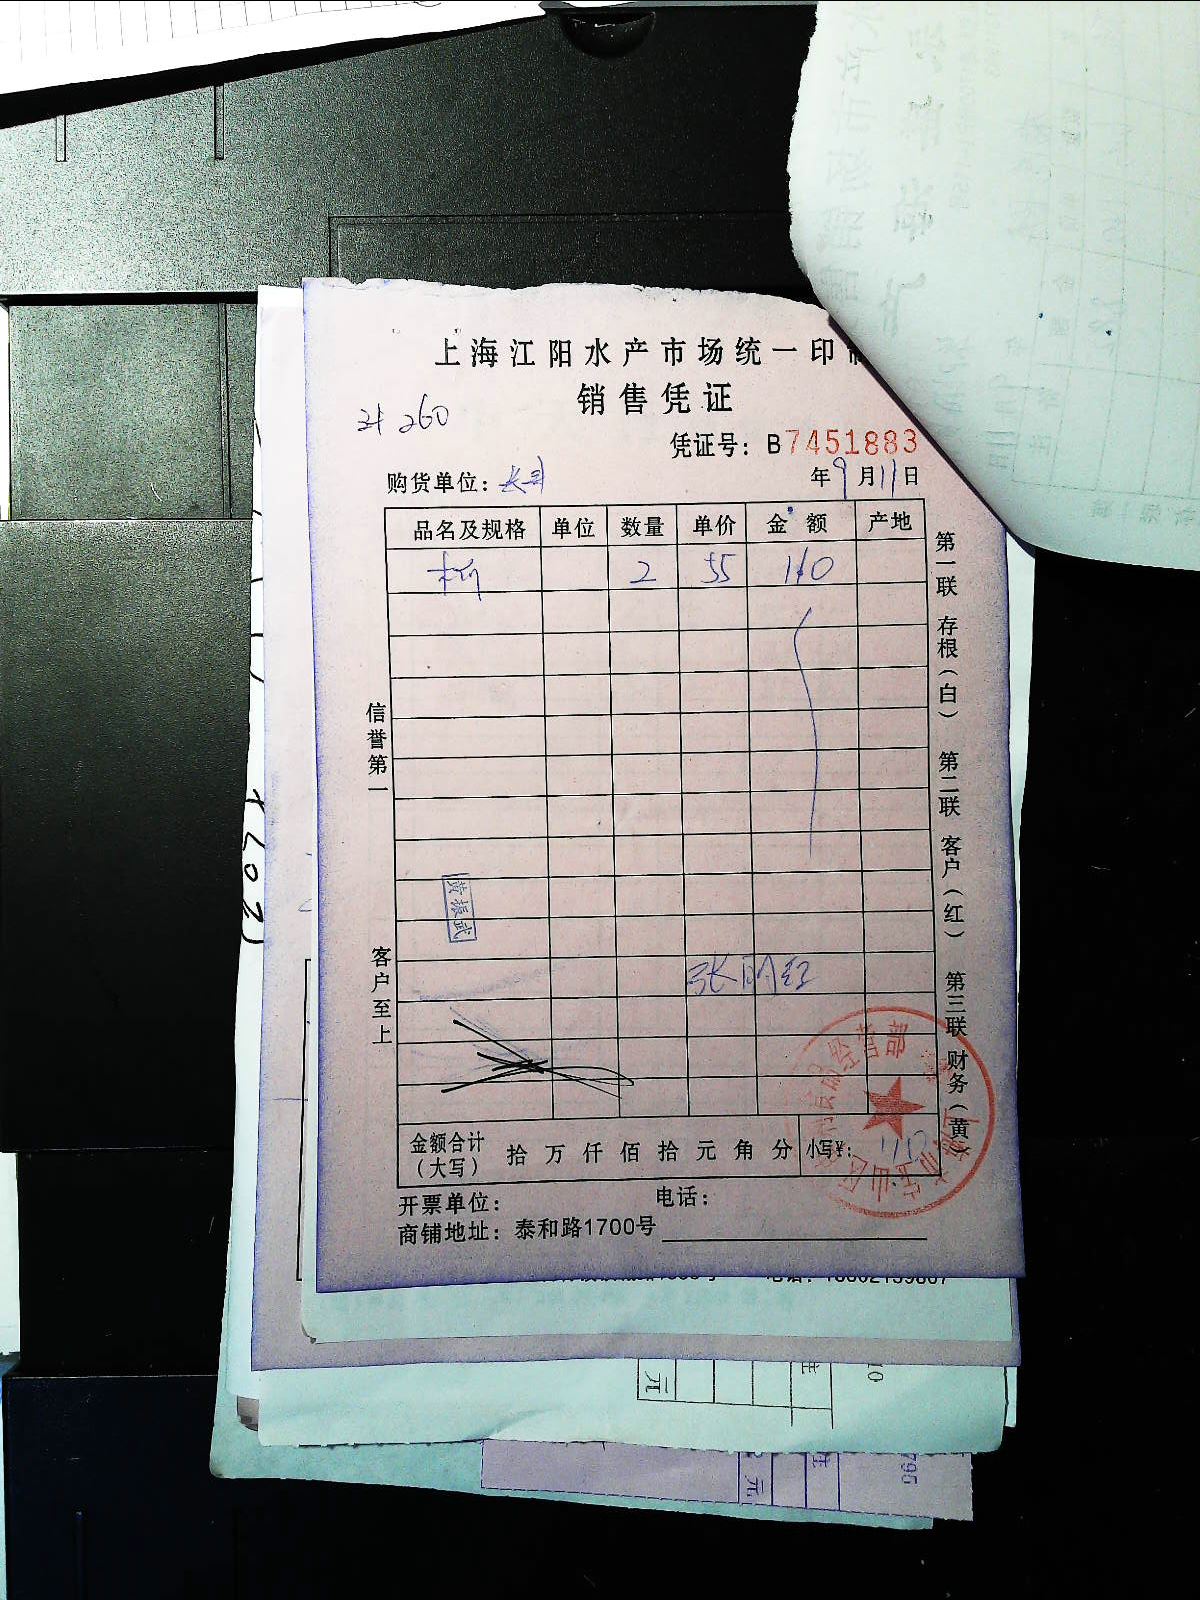 上海江阳水产市场统一印
销售凭证
260
凭证号：B7451883
购货单位：
年9月11日
品名及规格 单位 数量 单价 金额 产地
2 55 110
第一联 存根（白） 第二联 客户（红） 第三联 财务（黄）
信誉第一
客户至上
黄振武
张明红
金额合计（大写） 拾 万 仟 佰 拾 元 角 分 小写¥： 110
开票单位： 电话：
商铺地址：泰和路1700号
元
10
元
795